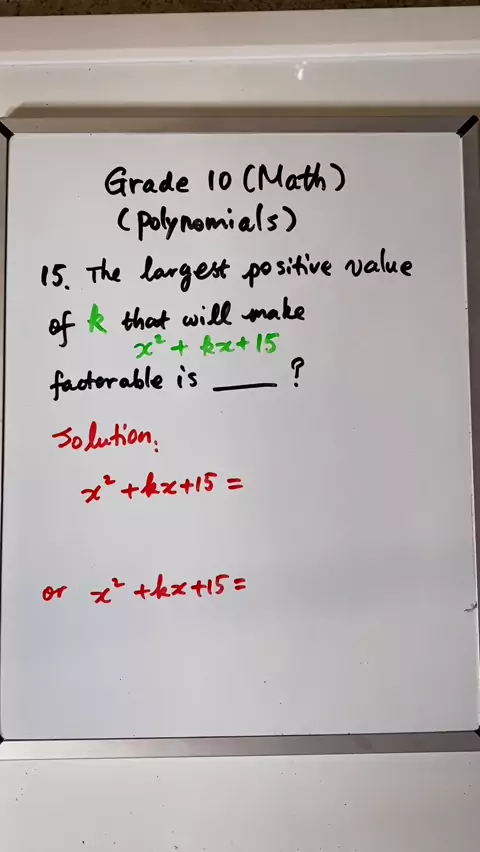 Grade 10 (Math)
(Polynomials)
15. The largest positive value
of k that will make
x² + kx + 15
factorable is ____ ?
Solution:
x² + kx + 15 =
or x² + kx + 15 =